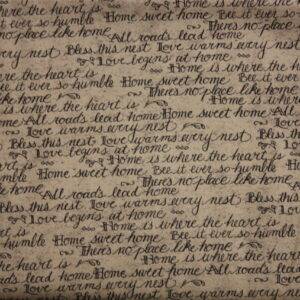 Home sweet home Bee it ever so
Be it ever so humble There's no place
no place like home All roads lead home
Bless this nest Love warms every nest
Love begins at home
Home is where the he
where the heart is Home sweet home Bee it ever
ever so humble There's no place like home
Home is where the heart is Home is w
All roads lead home Home sweet home Al
Love warms every nest Bless this nest Lo
Bless this nest Love warms every nest
Love begins at home
Home is where the heart is
where the heart is Home sweet home Be it ever so humble
so humble There's no place like home
All roads lead home
Bless this nest Love warms every nest
Love begins at home
Home is where the heart is
humble Home sweet home Be it ever so humble
There's no place like home
Home is where the heart is All roads
lead home Home sweet home All roads lead h
Love warms every nest Bless this nest